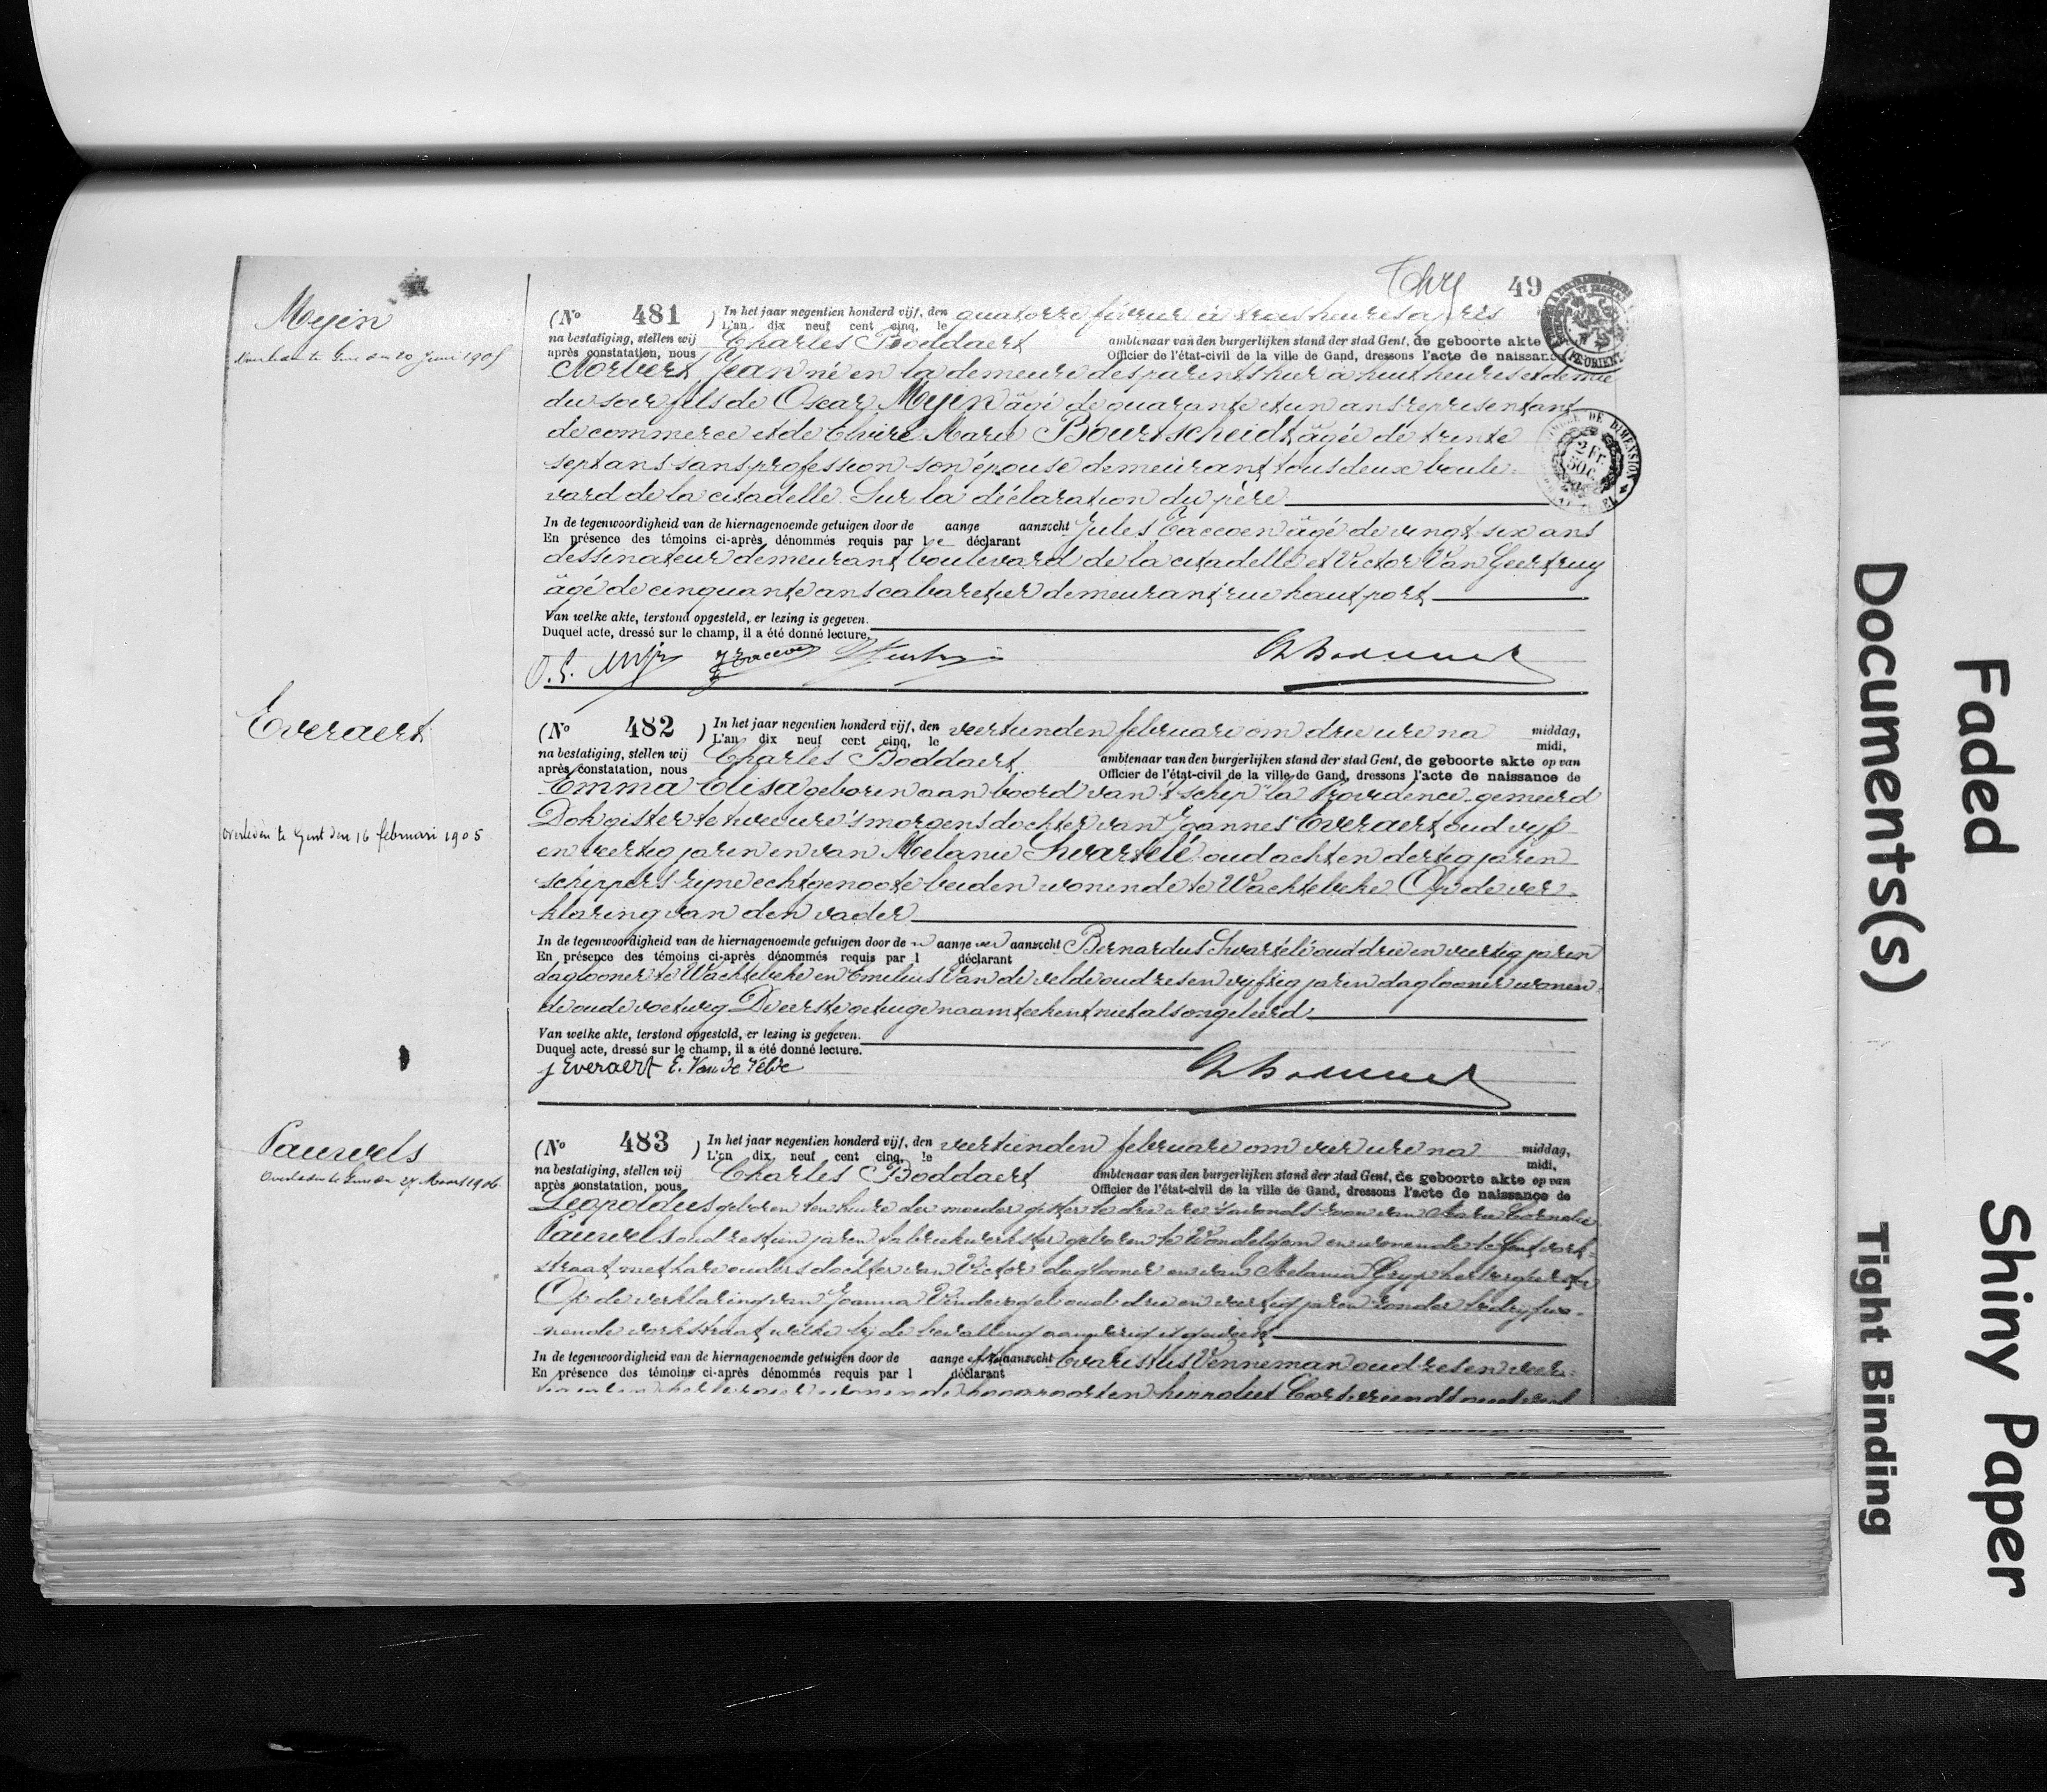 49
Meyin
(No 481 ) In het jaar negentien honderd vijf, den quatorze février à trois heures après
L'an dix neuf cent cinq, le
na bestatiging, stellen wij Charles Boddaert ambtenaar van den burgerlijken stand der stad Gent, de geboorte akte
après constatation, nous Officier de l'état-civil de la ville de Gand, dressons l'acte de naissance
Norbert Jean né en la demeure des parents hier à huit heures et demie
du soir fils de Oscar Meyin âgé de quarante et un ans représentant
de commerce et de Elvire Marie Bourtscheidt âgée de trente
sept ans sans profession son épouse demeurant tous deux boule-
vard de la citadelle. Sur la déclaration du père
In de tegenwoordigheid van de hiernagenoemde getuigen door de aange aanzocht Jules Taccoen âgé de vingt-six ans
En présence des témoins ci-après dénommés requis par l e déclarant
dessinateur demeurant boulevard de la citadelle et Victor Van Geertruy
âgé de cinquante ans cabaretier demeurant rue haut port
Van welke akte, terstond opgesteld, er lezing is gegeven.
Duquel acte, dressé sur le champ, il a été donné lecture.
Everaert
overleden te Gent den 16 februari 1905
(No 482 ) In het jaar negentien honderd vijf, den veertienden februari om drie ure na middag,
L'an dix neuf cent cinq, le midi,
na bestatiging, stellen wij Charles Boddaert ambtenaar van den burgerlijken stand der stad Gent, de geboorte akte op van
après constatation, nous Officier de l'état-civil de la ville de Gand, dressons l'acte de naissance de
Emma Elisa geboren aan boord van 't schip "la Providence" gemeerd
Dok gister te twee ure 's morgens dochter van Joannes Everaert oud vijf
en veertig jaren en van Melanie Swartelé oud acht en dertig jaren
schippers zijne echtgenoote beiden wonende te Wachtebeke. Op de ver-
klaring van den vader
In de tegenwoordigheid van de hiernagenoemde getuigen door de n aange ver aanzocht Bernardus Swartelé oud drie en veertig jaren
En présence des témoins ci-après dénommés requis par l déclarant
daglooner te Wachtebeke en Emelius Van de velde oud zes en vijftig jaren daglooner wonen-
de oude voetweg. De eerste getuige naamteekent niet als ongeleerd
Van welke akte, terstond opgesteld, er lezing is gegeven.
Duquel acte, dressé sur le champ, il a été donné lecture.
J Everaert E. Van de Velde
Pauwels
Overleden te Gent den 27 Maart 1906
(No 483 ) In het jaar negentien honderd vijf, den veertienden februari om vier ure na middag,
L'an dix neuf cent cinq, le midi,
na bestatiging, stellen wij Charles Boddaert ambtenaar van den burgerlijken stand der stad Gent, de geboorte akte op van
après constatation, nous Officier de l'état-civil de la ville de Gand, dressons l'acte de naissance de
Leopoldus geboren ten huize der moeder gister te drie ure 's avonds zoon van Maria Cornelia
Pauwels oud zestien jaren fabriekwerkster geboren te Wondelgem en wonende te Gent work-
straat met hare ouders dochter van Victor daglooner en van Melania Gryp herbergierster
Op de verklaring van Joanna Vindevogel oud drie en veertig jaren zonder bedryf wo-
nende workstraat welke bij de bevalling aanwezig is geweest
In de tegenwoordigheid van de hiernagenoemde getuigen door de aange aanzocht Evaristus Venneman oud zes en veer-
En présence des témoins ci-après dénommés requis par l déclarant
Faded
Documents(s)
Shiny Paper
Tight Binding